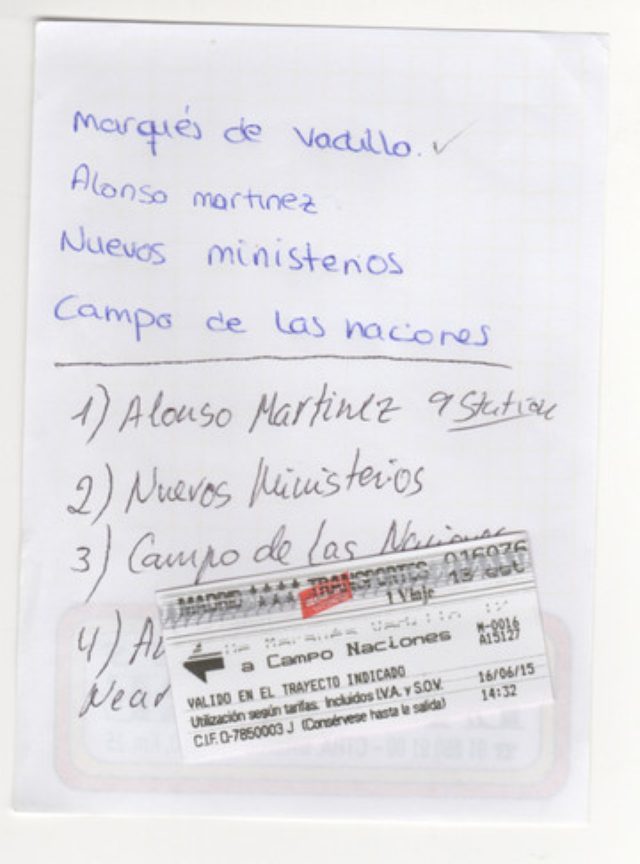 Marqués de Vadillo.
Alonso martinez
Nuevos ministerios
Campo de las naciones
1) Alonso Martinez 9 Station
2) Nuevos Ministerios
3) Campo de las Naciones
MADRID TRANSPORTES 016076
1 Viaje
De Marqués Vadillo
a Campo Naciones M-0016
A15127
VALIDO EN EL TRAYECTO INDICADO 16/06/15
Utilización según tarifas. Incluidos I.V.A. y S.O.V. 14:32
C.I.F. Q-7850003 J (Consérvese hasta la salida)
4)
Near